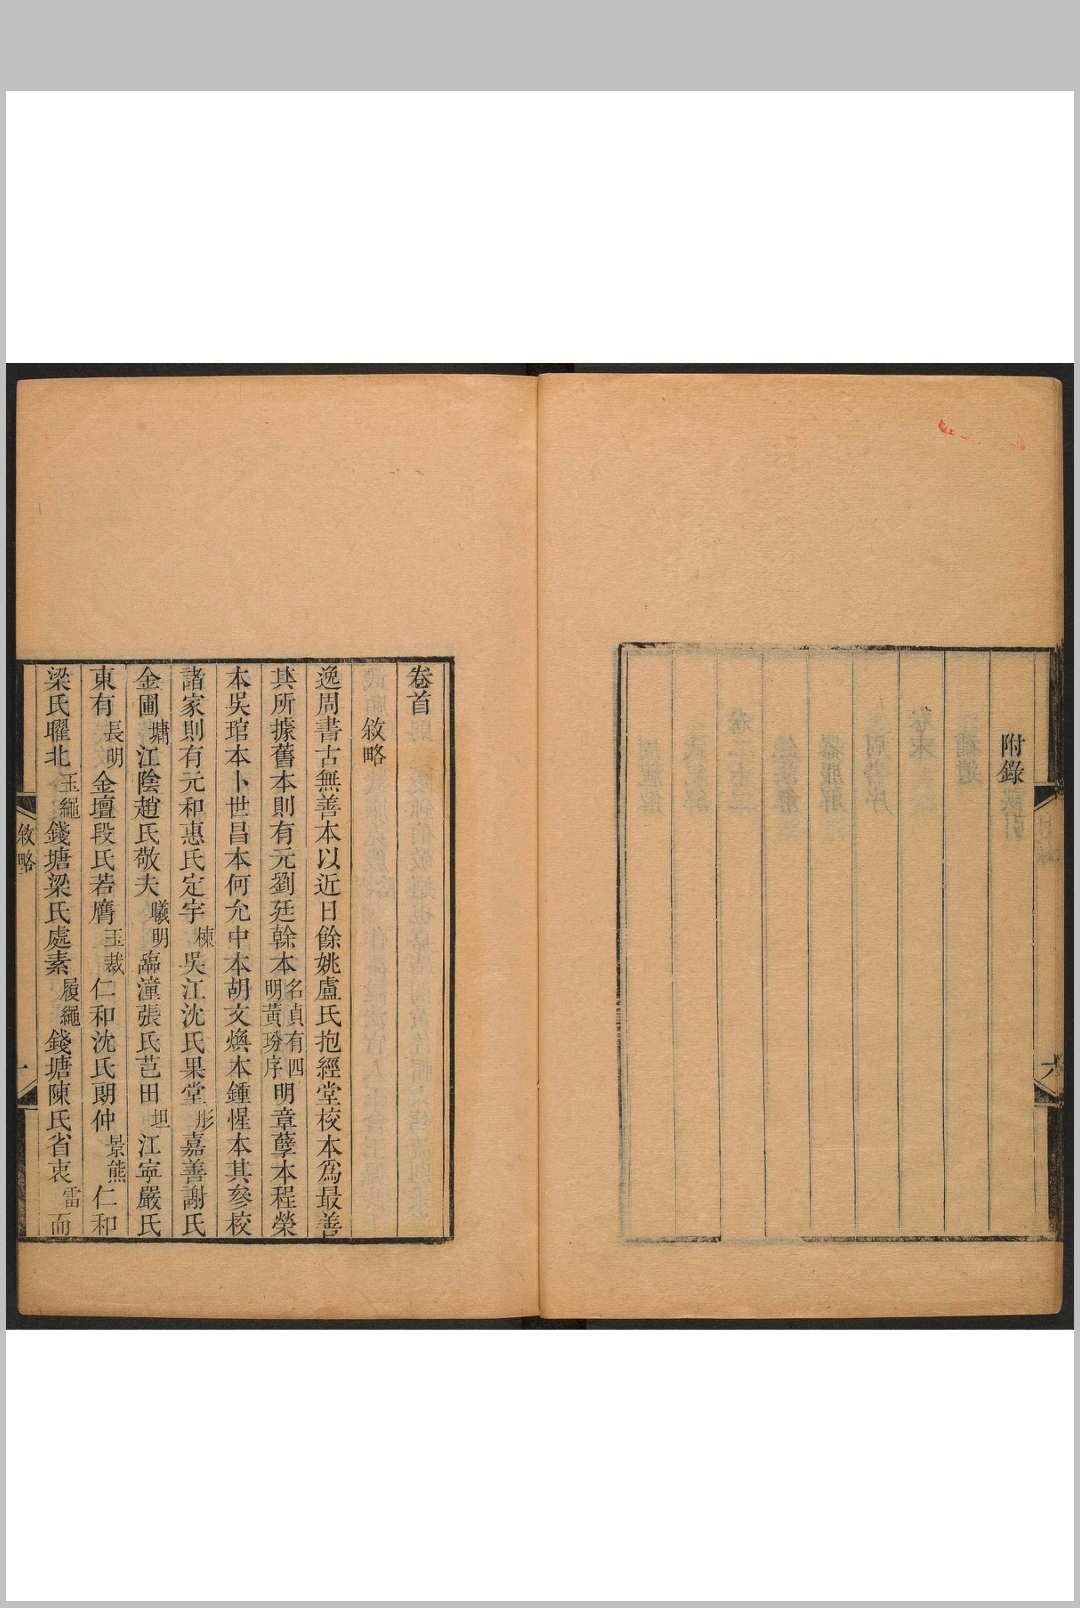 附錄
六
卷首
敘略
逸周書古無善本以近日餘姚盧氏抱經堂校本爲最善
其所據舊本則有元劉廷榦本名貞有四明黃玢序明章檗本程榮
本吳琯本卜世昌本何允中本胡文煥本鍾惺本其參校
諸家則有元和惠氏定宇棟吳江沈氏果堂彤嘉善謝氏
金圃墉江陰趙氏敬夫曦明臨潼張氏芑田坦江寧嚴氏
東有長明金壇段氏若膺玉裁仁和沈氏朗仲景熊仁和
梁氏曜北玉繩錢塘梁氏處素履繩錢塘陳氏省衷雷而
敘略
一